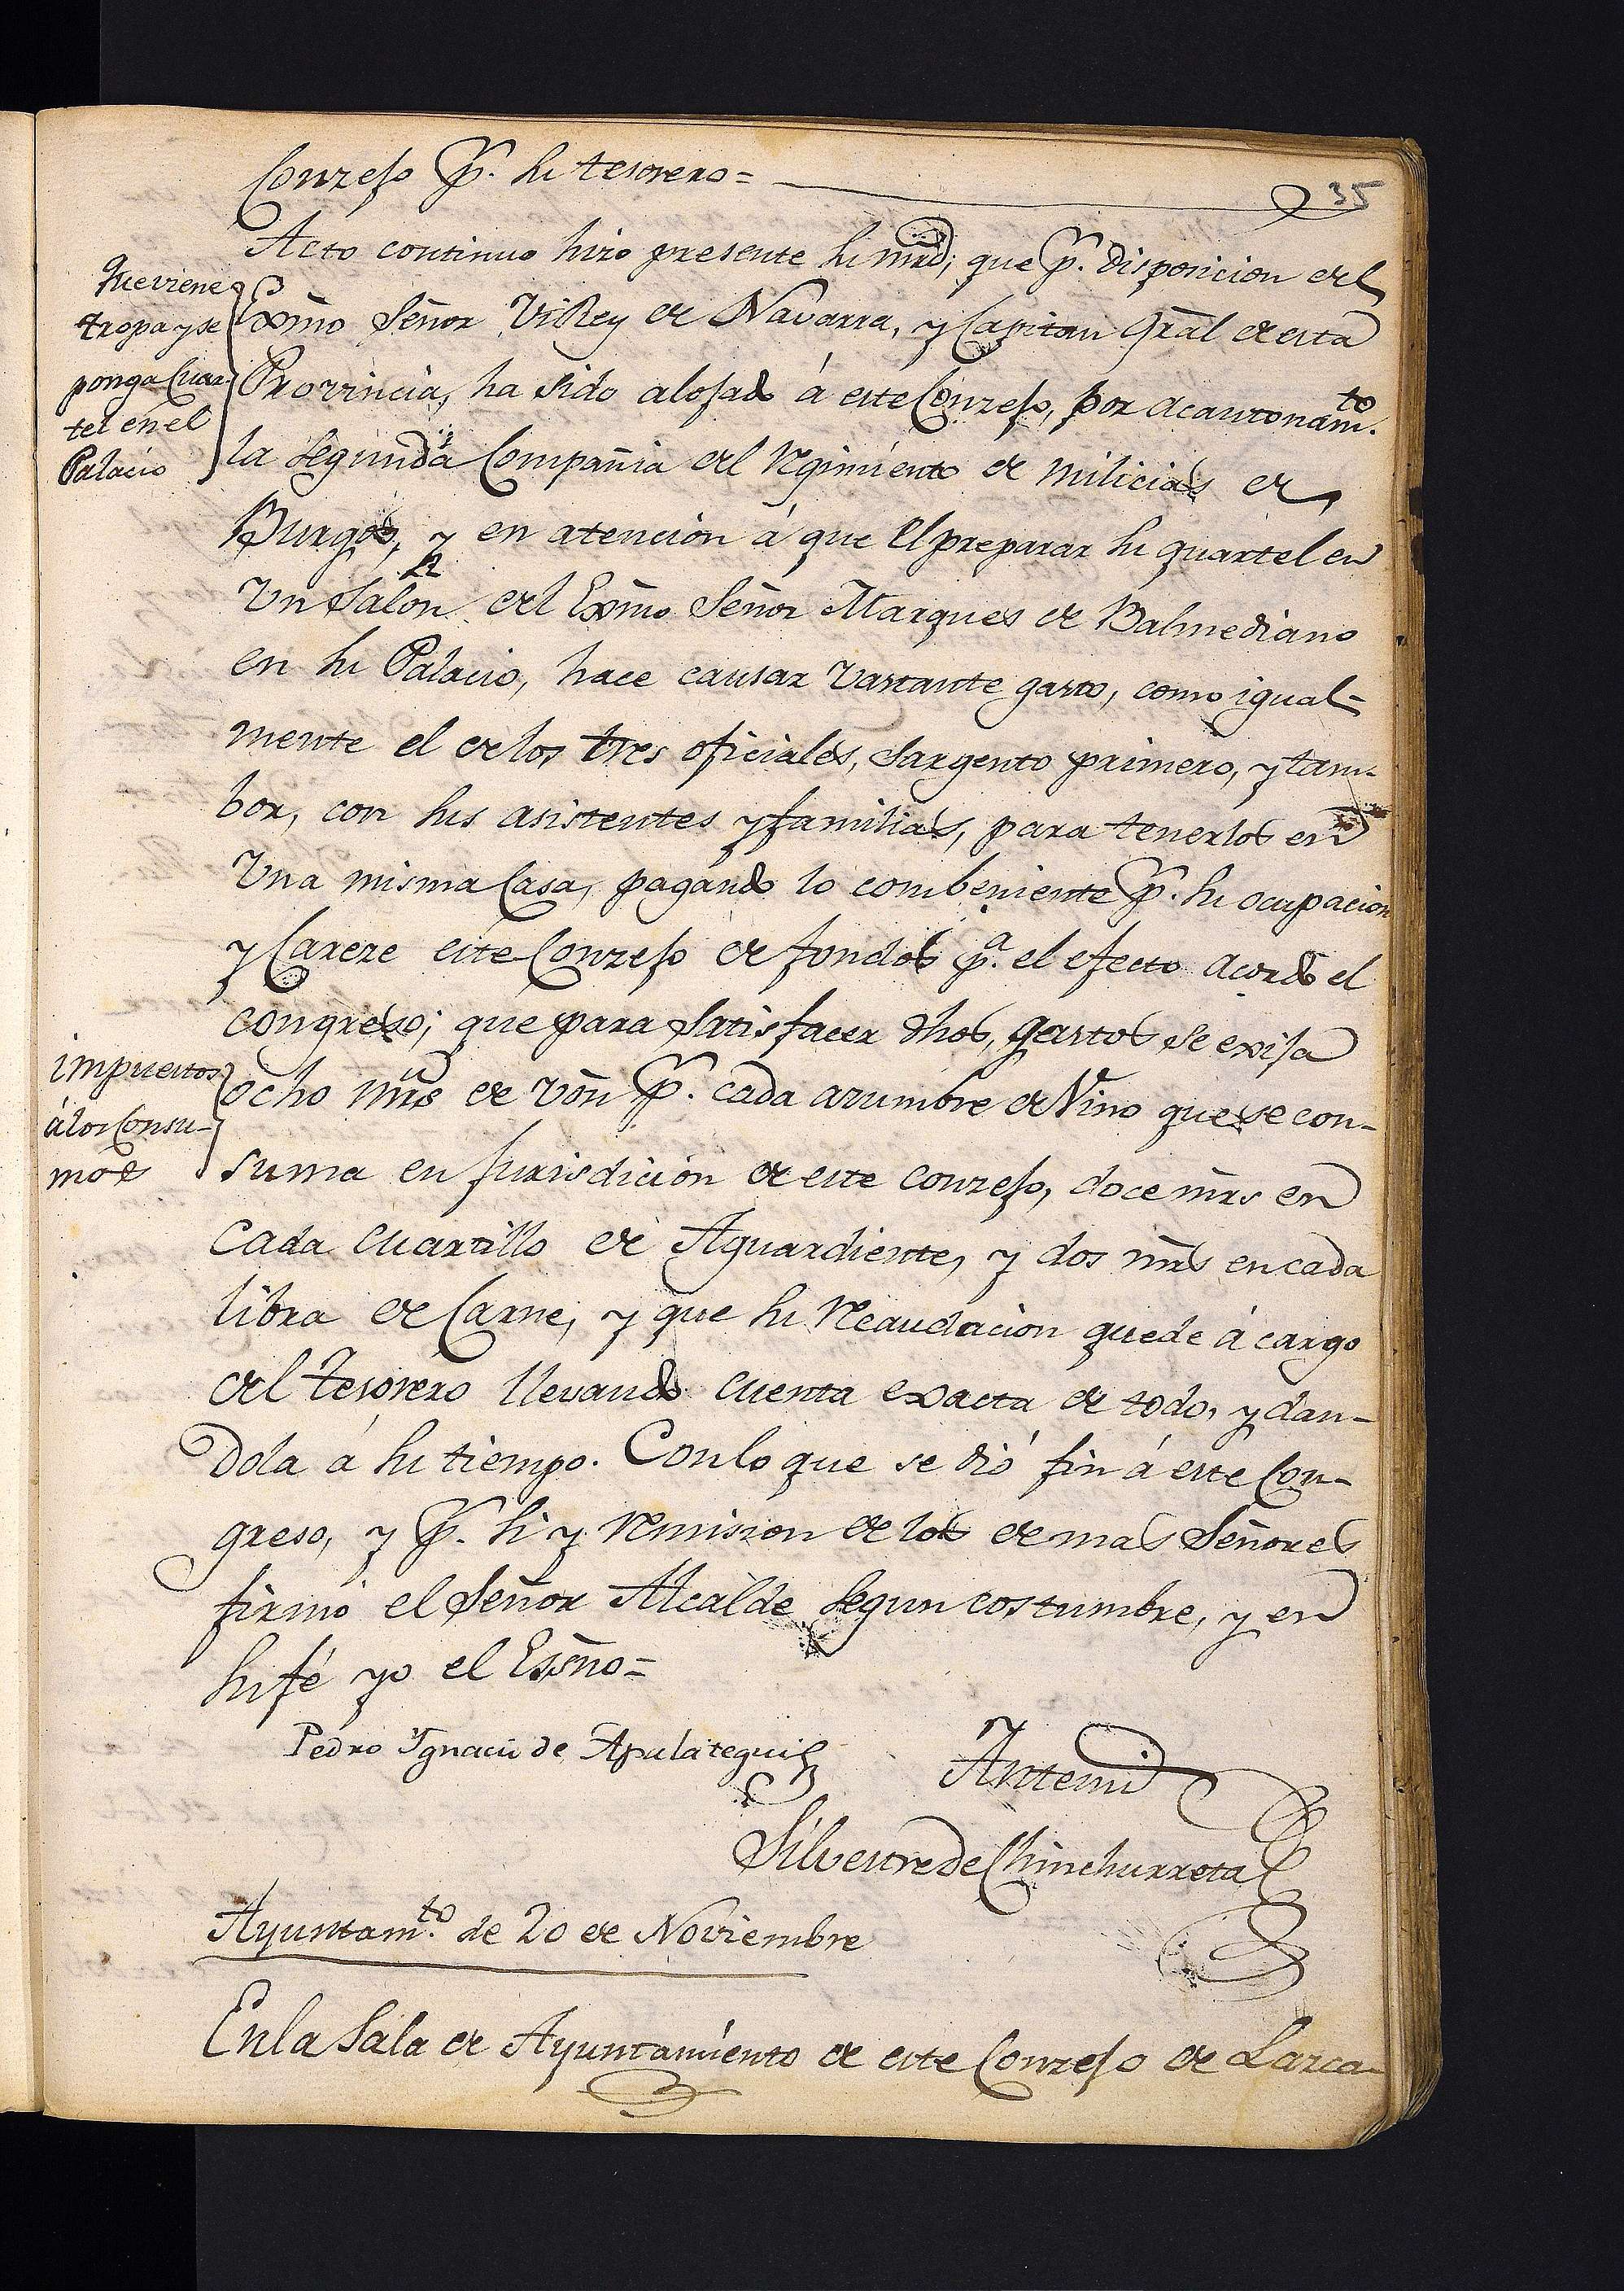 35
Conzejo p.r su tesorero=
Acto continuo hizo presente su mrd; que p.r disposicion del
Exmo Señor ViRey de Navarra, y Capitan Gral de esta
Provincia, ha sido alojado á este Conzejo, por acantonam.to
la segunda Compañia del Regimiento de Milicias de
Burgos, y en atencion á que el preparar su quartel en
Un Salon del Exmo Señor Marques de Balmediano
en su Palacio, hace causar vastante gasto, como igual=
mente el de los tres oficiales, Sargento primero, y tam-
bor, con sus asistentes y familias, para tenerlos en
Una misma Casa, pagando lo combeniente p.r su ocupacion
y Careze este Conzejo de fondos p.a el efecto acordó el
congreso; que para satisfacer dhos, gastos se exija
ocho mrs de von p.r cada azumbre de Vino que se con-
suma en jurisdicion de este conzejo, doce mrs en
Cada cuartillo de Aguardiente, y dos mrs en cada
libra de Carne, y que su Recaudacion quede á cargo
del tesorero llevando cuenta exacta de todo, y dan-
dola á su tiempo. Con lo que se dió fin á este Con-
greso, y p.r si y Remision de los demas Señores
firmó el Señor Alcalde segun costumbre, y en
su fé yo el Essno=
Pedro Ygnacio de Apalategui
Antemi
Silvestre de Chinchurreta
Ayuntam.to de 20 de Noviembre
En la Sala de Ayuntamiento de este Conzejo de Lazca-
Que viene
tropa y se
ponga Cuar-
tel en el
Palacio
impuestos
á los Consu-
mos